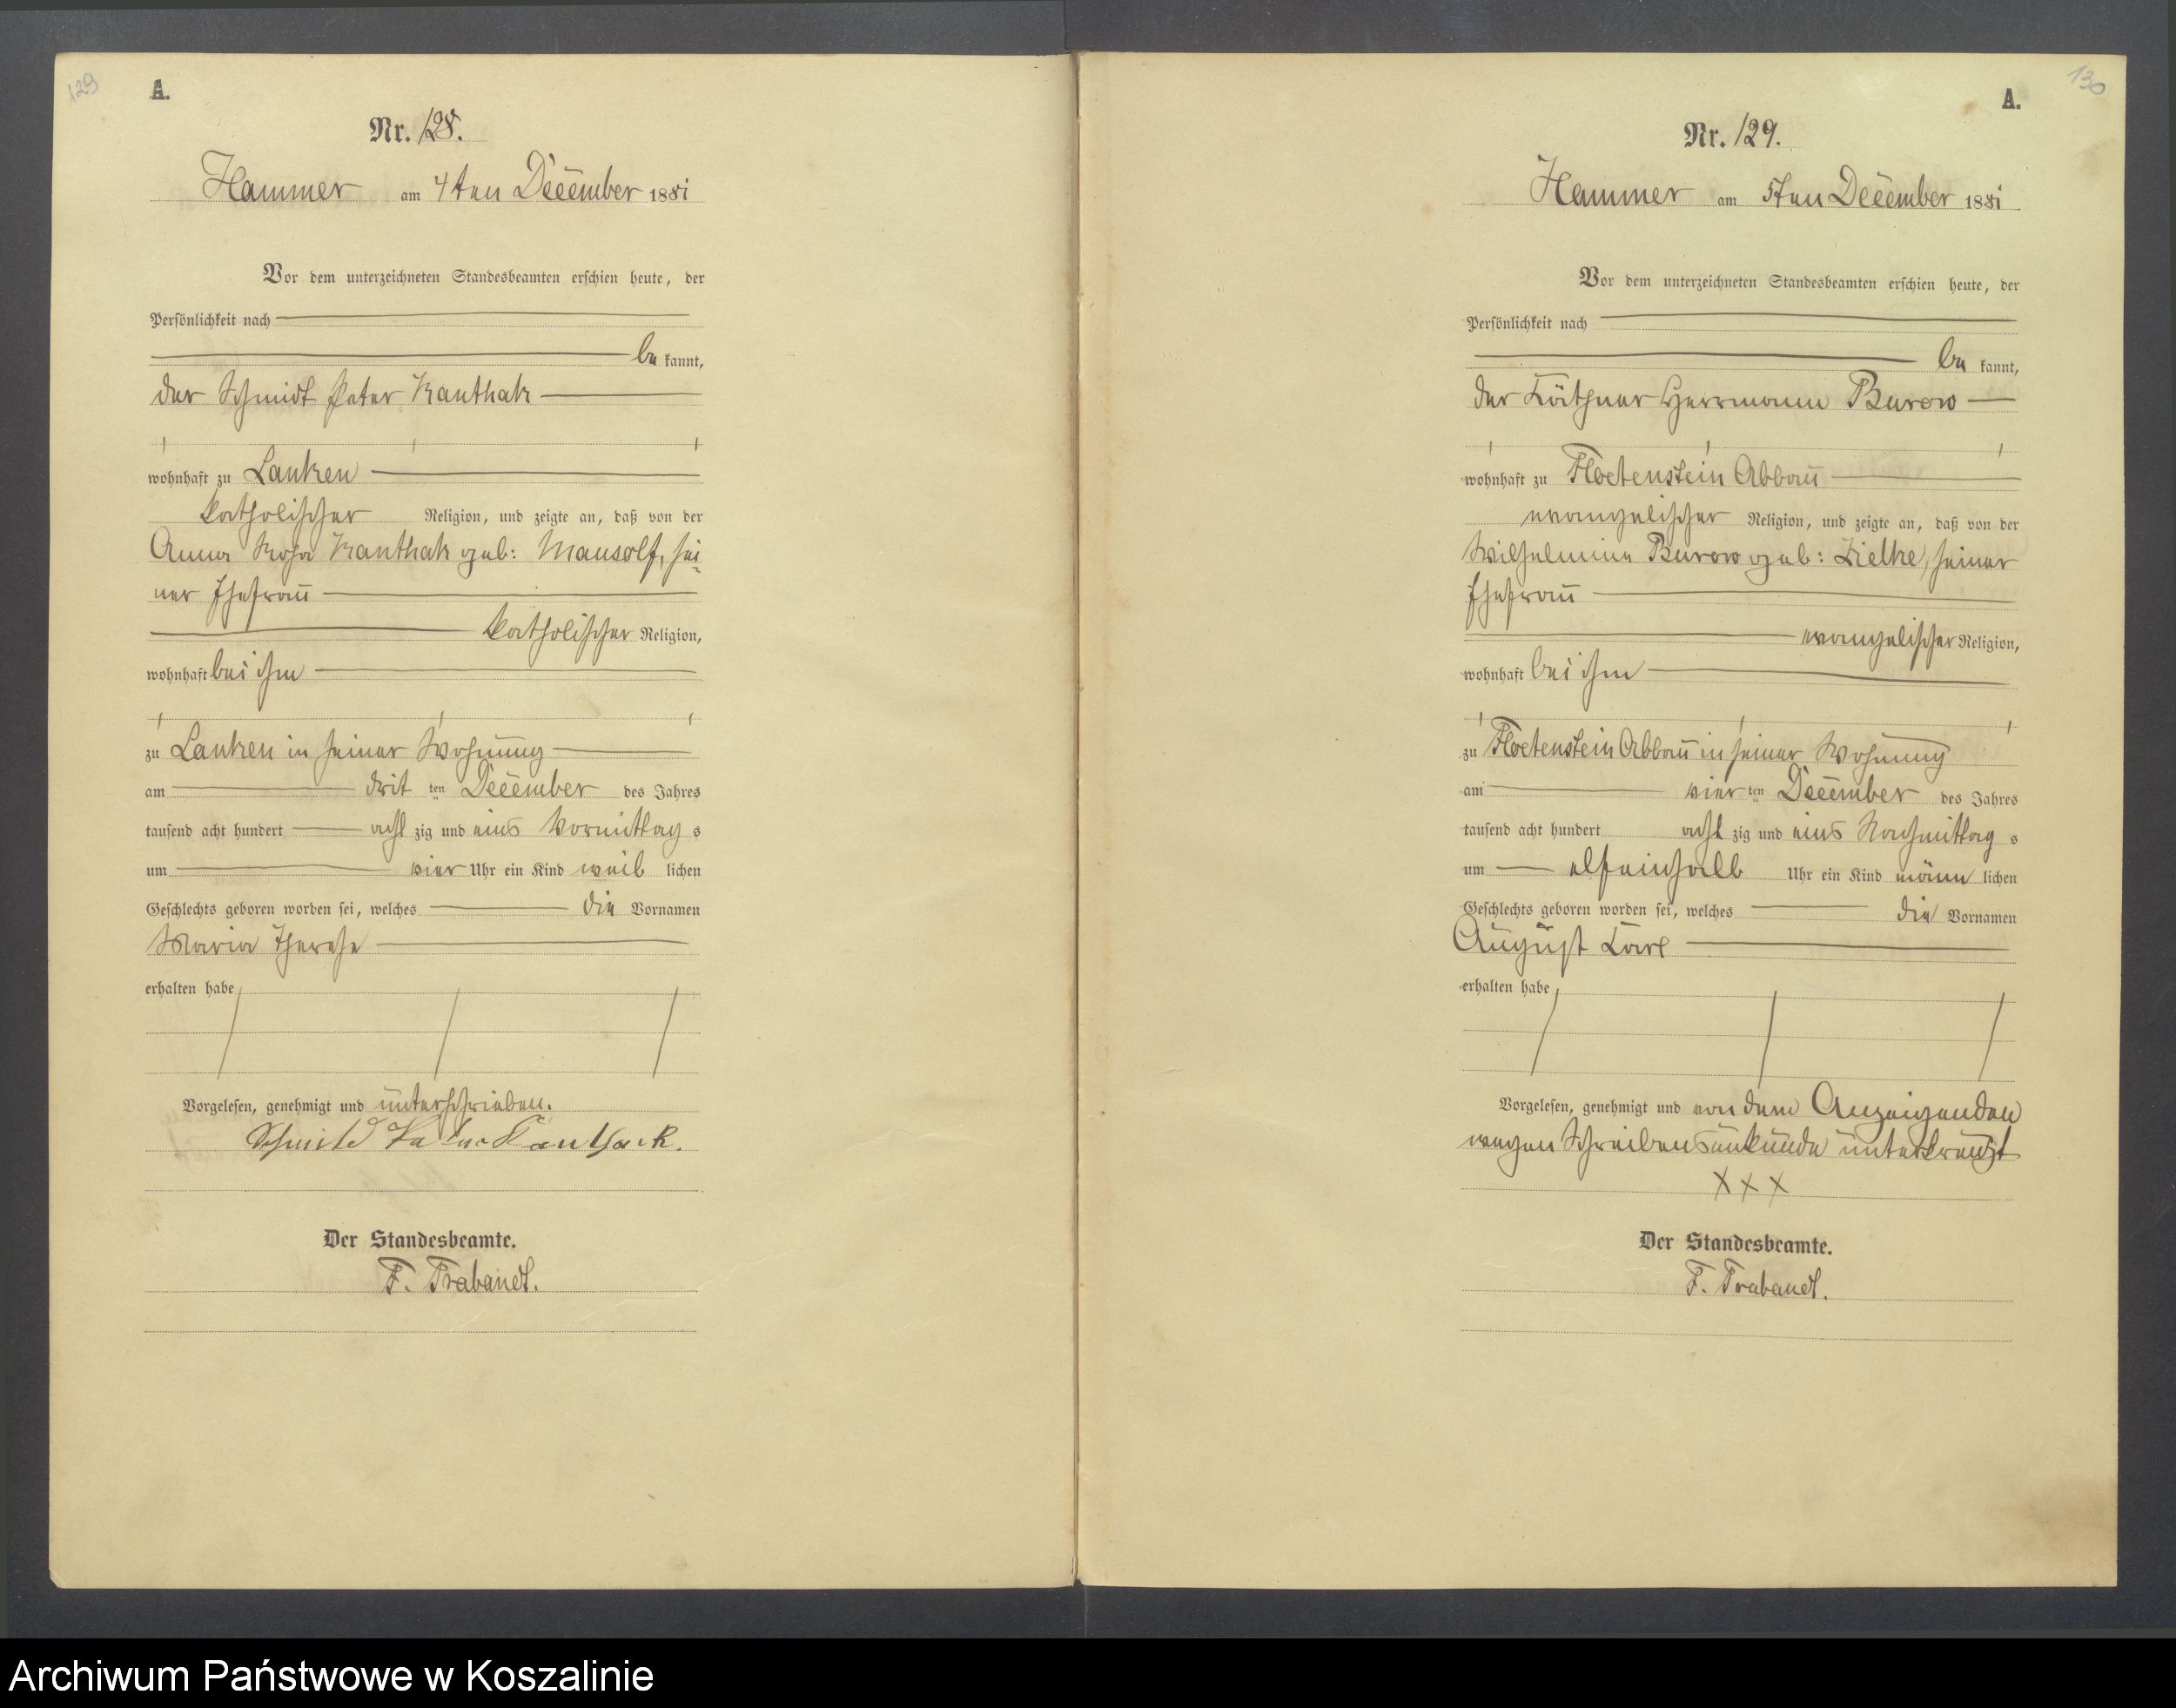 129
A.
Nr. 128.
Hammer am 4ten December 1881
Vor dem unterzeichneten Standesbeamten erschien heute, der
Persönlichkeit nach
be kannt,
der Schmidt Peter Kanthak
wohnhaft zu Lanken
katholischer Religion, und zeigte an, daß von der
Anna Rosa Kanthak geb: Mausolf, sei-
ner Ehefrau
katholischer Religion,
wohnhaft bei ihm
zu Lanken in seiner Wohnung
am drit ten December des Jahres
tausend acht hundert acht zig und eins Vormittag s
um vier Uhr ein Kind weib lichen
Geschlechts geboren worden sei, welches die Vornamen
Maria Therese
erhalten habe
Vorgelesen, genehmigt und unterschrieben.
Schmidt Peter Kanthack.
Der Standesbeamte.
F. Trabandt.
130
A.
Nr. 129.
Hammer am 5ten December 1881
Vor dem unterzeichneten Standesbeamten erschien heute, der
Persönlichkeit nach
be kannt,
der Käthner Herrmann Burow
wohnhaft zu Floetenstein Abbau
evangelischer Religion, und zeigte an, daß von der
Wilhelmine Burow geb: Zielke, seiner
Ehefrau
evangelischer Religion,
wohnhaft bei ihm
zu Floetenstein Abbau in seiner Wohnung
am vier ten December des Jahres
tausend acht hundert acht zig und eins Nachmittag s
um elfeinhalb Uhr ein Kind männ lichen
Geschlechts geboren worden sei, welches die Vornamen
August Carl
erhalten habe
Vorgelesen, genehmigt und von dem Anzeigenden
wegen Schreibensunkunde unterkreuzt
XXX
Der Standesbeamte.
F. Trabandt.
Archiwum Państwowe w Koszalinie